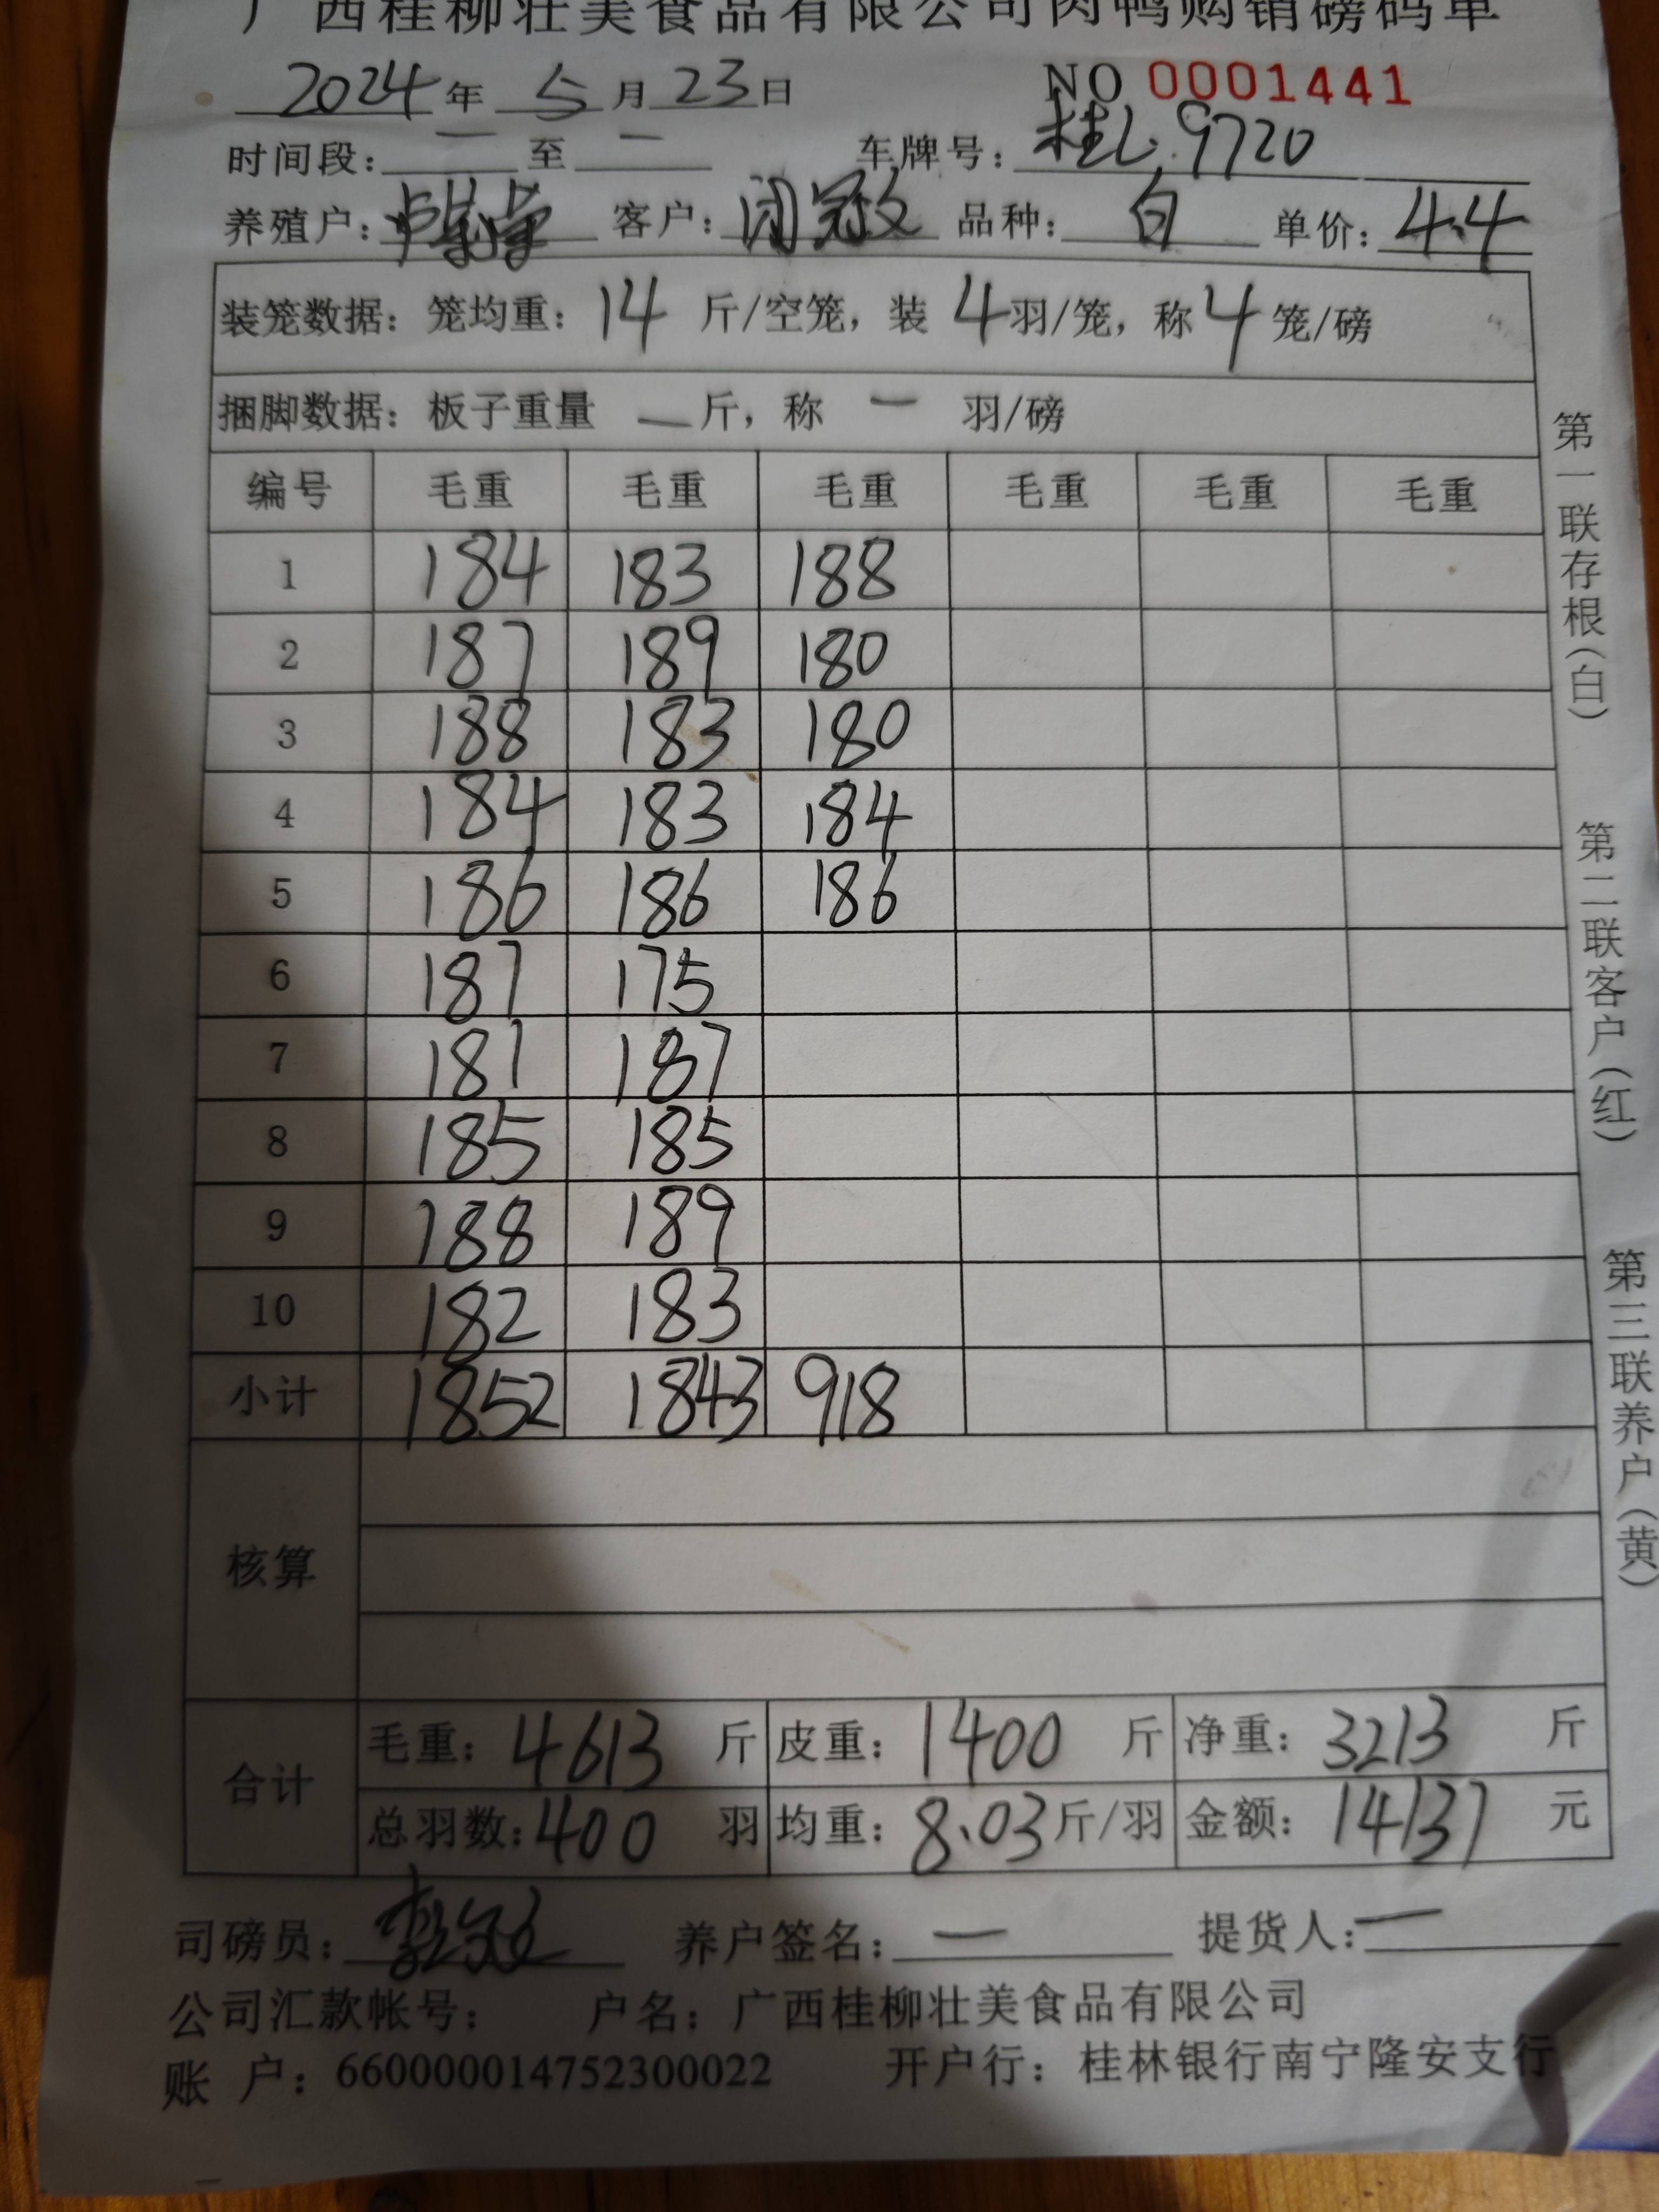 广西桂柳壮美食品有限公司肉鸭购销磅码单
2024年 5月23日 NO 0001441
时间段: 一 至 一 车牌号: 桂L 9720
养殖户: 客户: 闭冠政 品种: 白 单价: 4.4
装笼数据: 笼均重: 14 斤/空笼, 装 4羽/笼, 称4 笼/磅
捆脚数据: 板子重量 一斤, 称 一 羽/磅
编号 毛重 毛重 毛重 毛重 毛重 毛重
1 184 183 188
2 187 189 180
3 188 183 180
4 184 183 184
5 186 186 186
6 187 175
7 181 187
8 185 185
9 188 189
10 182 183
小计 1852 1843 918
核算
合计 毛重: 4613 斤 皮重: 1400 斤 净重: 3213 斤
总羽数: 400 羽 均重: 8.03斤/羽 金额: 14137 元
司磅员: 养户签名: 一 提货人: 一
公司汇款帐号: 户名: 广西桂柳壮美食品有限公司
账 户: 660000014752300022 开户行: 桂林银行南宁隆安支行
第一联存根(白)
第二联客户(红)
第三联养户(黄)